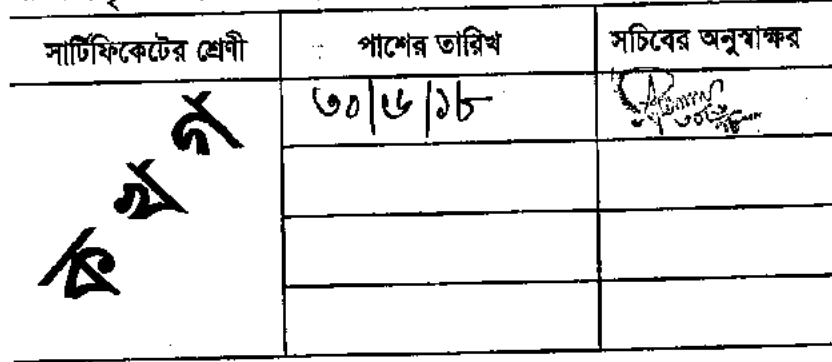 সার্টিফিকেটের শ্রেণী পাশের তারিখ সচিবের অনুস্বাক্ষর
ক খ গ ৩০/৬/১৮